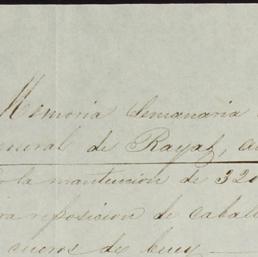 Memoria Semanaria
eneral de Rayas,
la mantencion de 320
ra reposicion de caball
cueros de buey